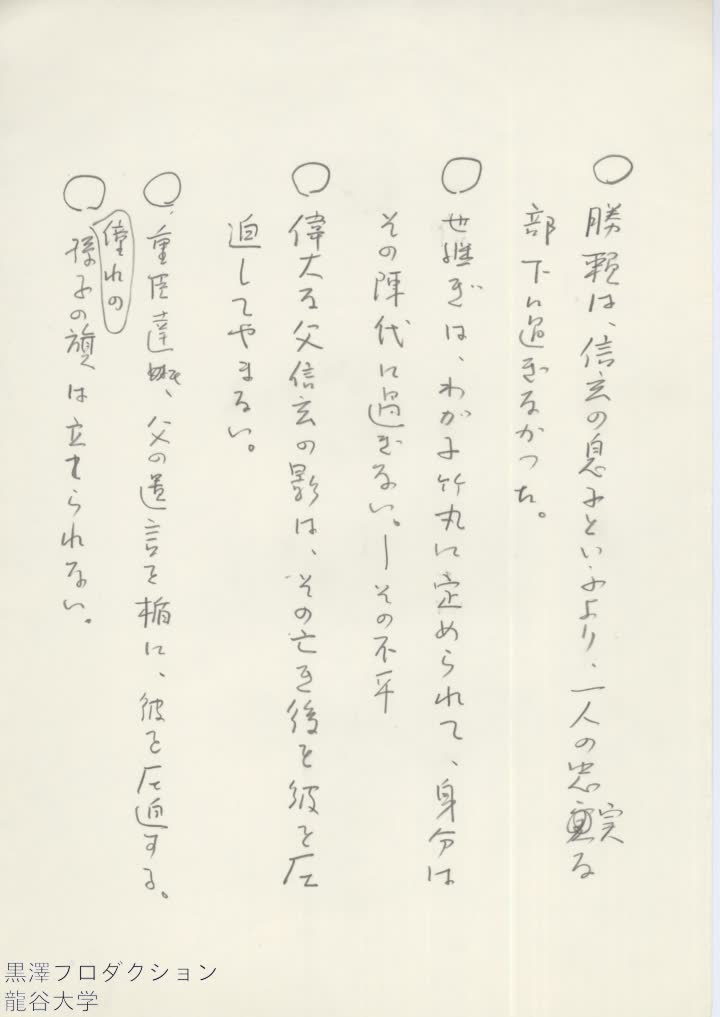 ○勝頼は、信玄の息子というより、一人の忠実な
部下に過ぎなかった。
○世継ぎは、わが子竹丸に定められて、身分は
その陣代に過ぎない。―その不平―
○偉大な父信玄の影は、その亡き後も彼を圧
迫してやまない。
○重臣達も、父の遺言を楯に、彼を圧迫する。
憧れの
○孫子の旗は立てられない。
黒澤プロダクション
龍谷大学